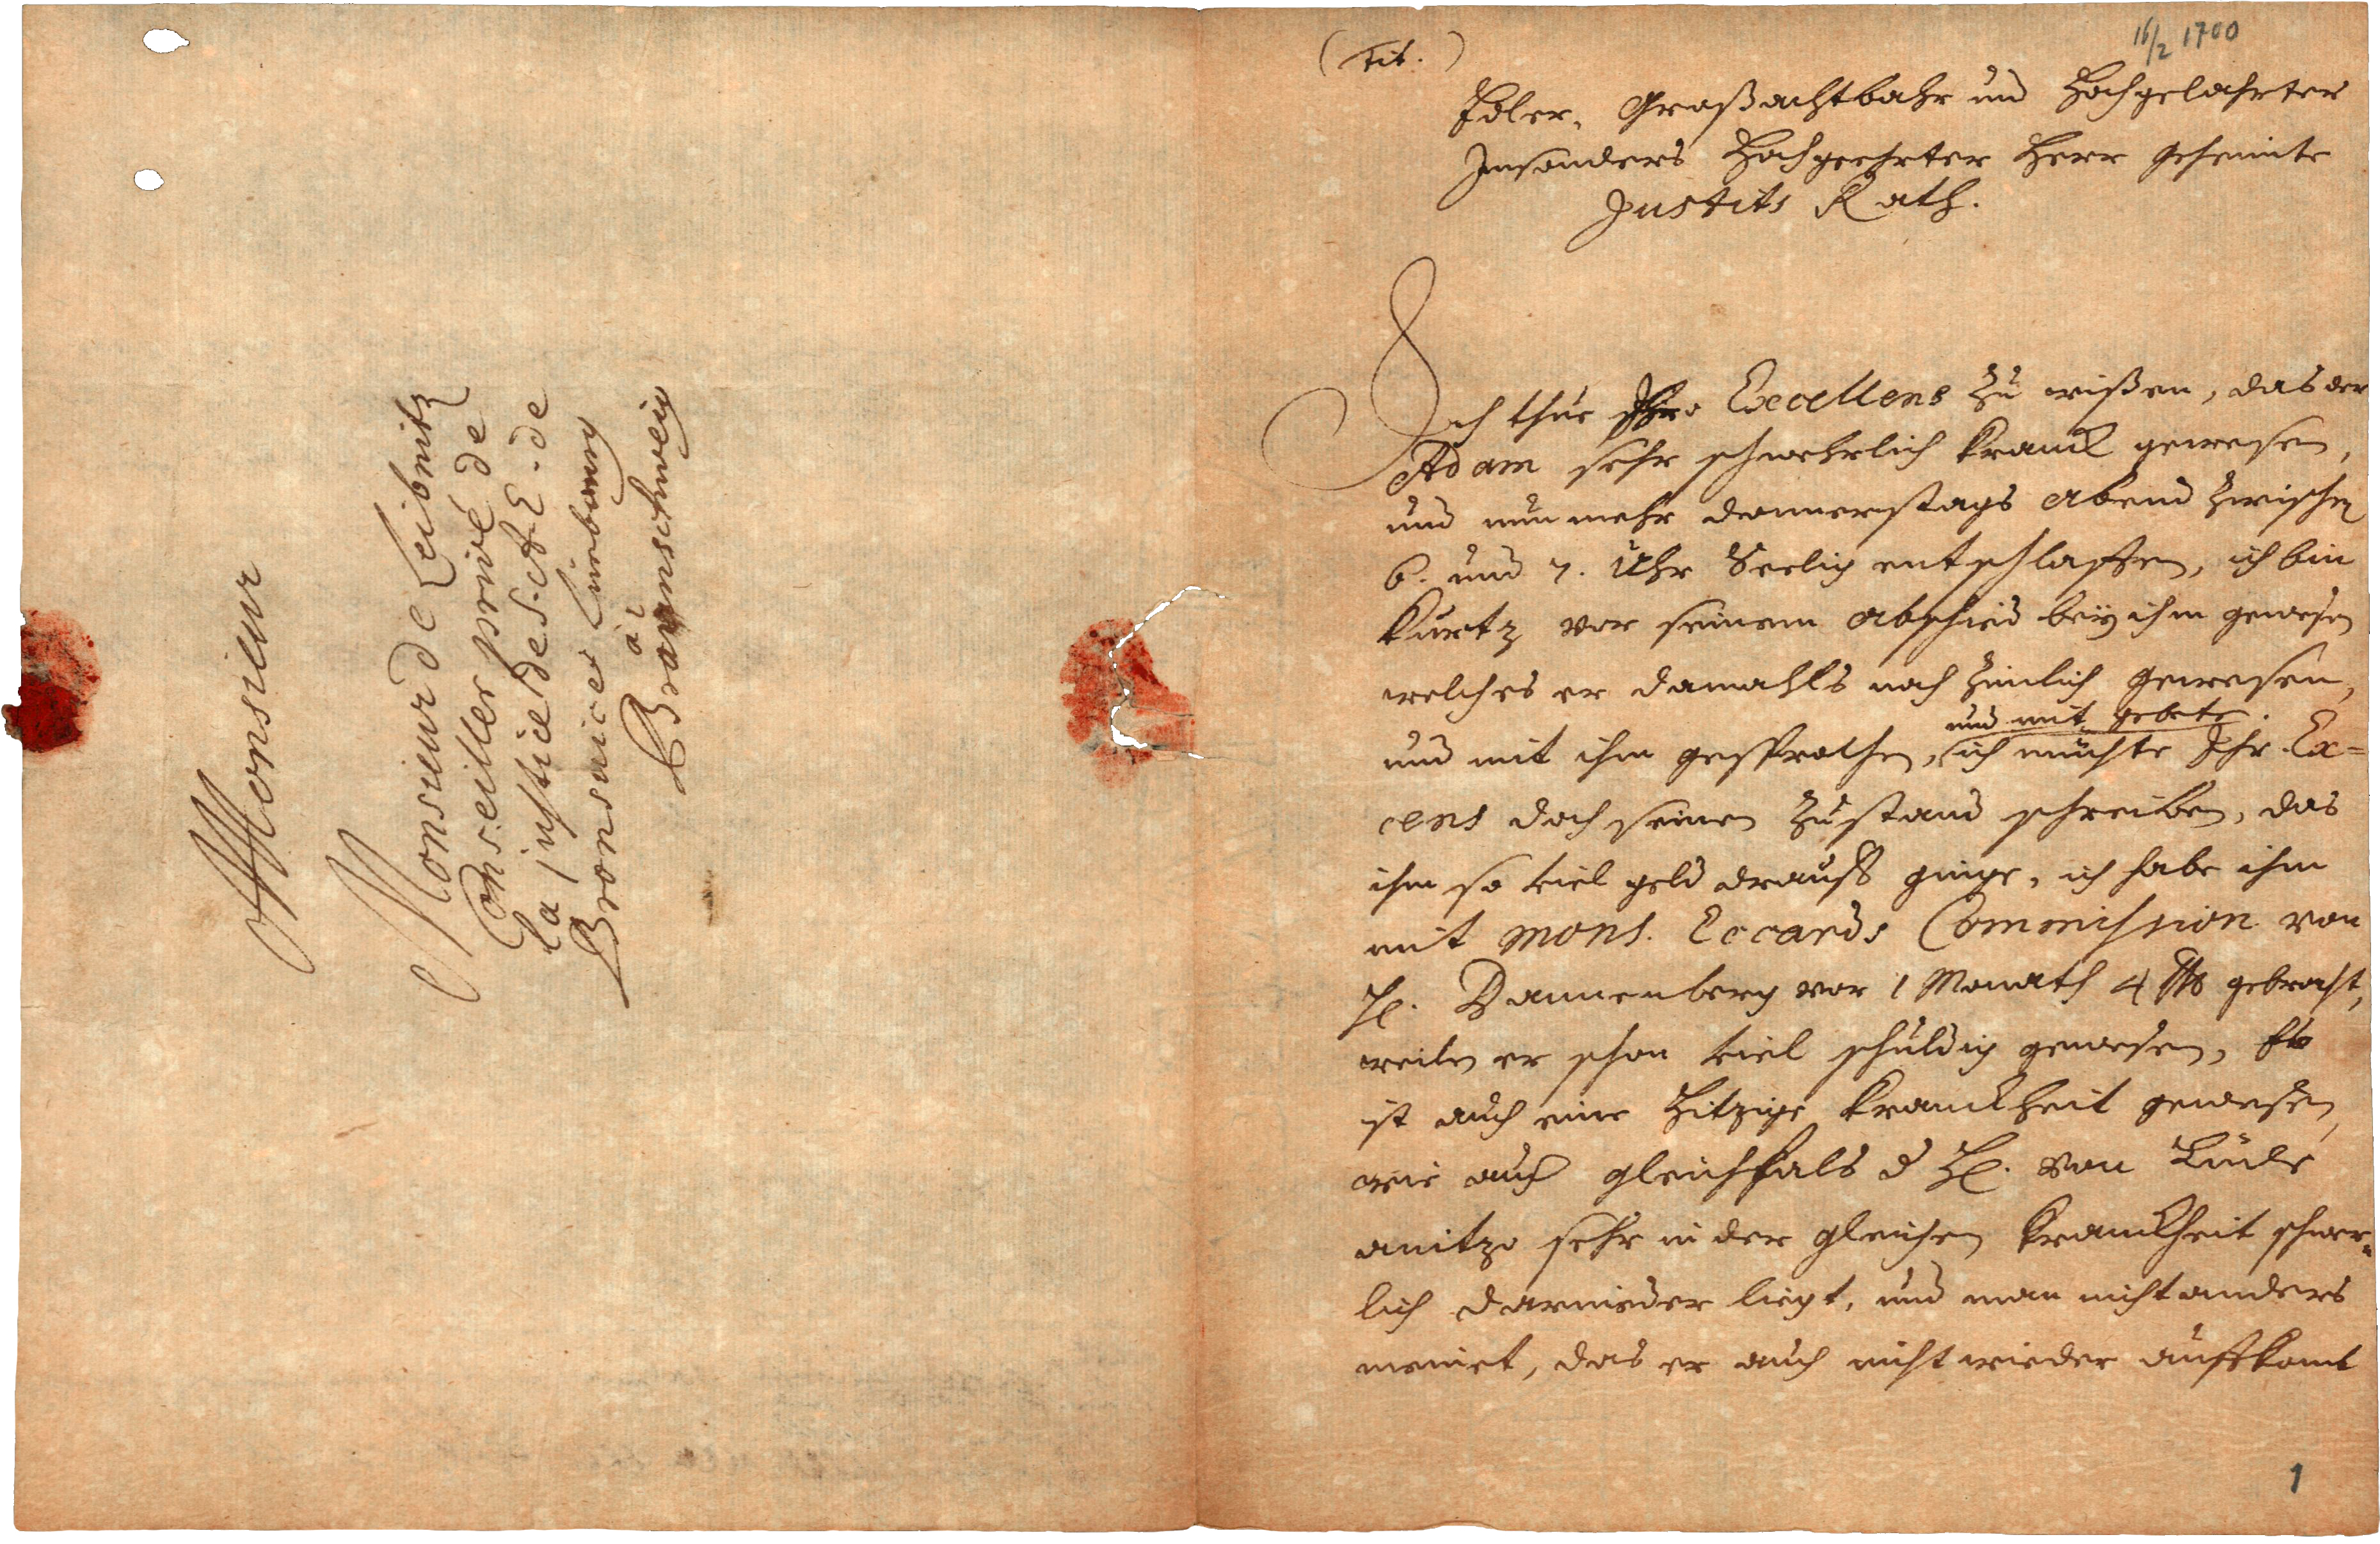 Monsieur
Monsieur de Leibnitz
Conseiller privé de
la justice de S. A. E. de
Bronsuicer Lunebourg
à
Braunschweig
16/2 1700
(Tit.)
Edler, Großachtbahr und Hochgelahrter
Insonders Hochgeehrter Herr Geheimte
Justits Rath.
Ich thue Ihro Excellens zu wißen, das der
Adam sehr schwehrlich kranck gewesen,
und nun mehr donnerstags abend zwischen
6. und 7. Uhr Seelig entschlaffen, ich bin
kurtz vor seinem abschied bey ihm gewesen
welches er damahls noch zimlich gewesen,
und mit gebete.
und mit ihm gesprochen, ich möchte Ihr. Ex=
cens doch seinen zustand schreiben, das
ihm so viel geld drauff ginge, ich habe ihm
mit Mons. Eccards Commission von
H. Dannenberg vor 1 Monath 4 gebracht,
weilen er schon viel schuldig gewesen, Es
ist auch eine Hitzige kranckheit gewesen,
wie auch gleichfals d H. von Lüde
anitzo sehr in der gleichen kranckheit schwer=
lich darnieder liegt, und man nicht anders
meinet, das er auch nicht wieder auffkomt
1